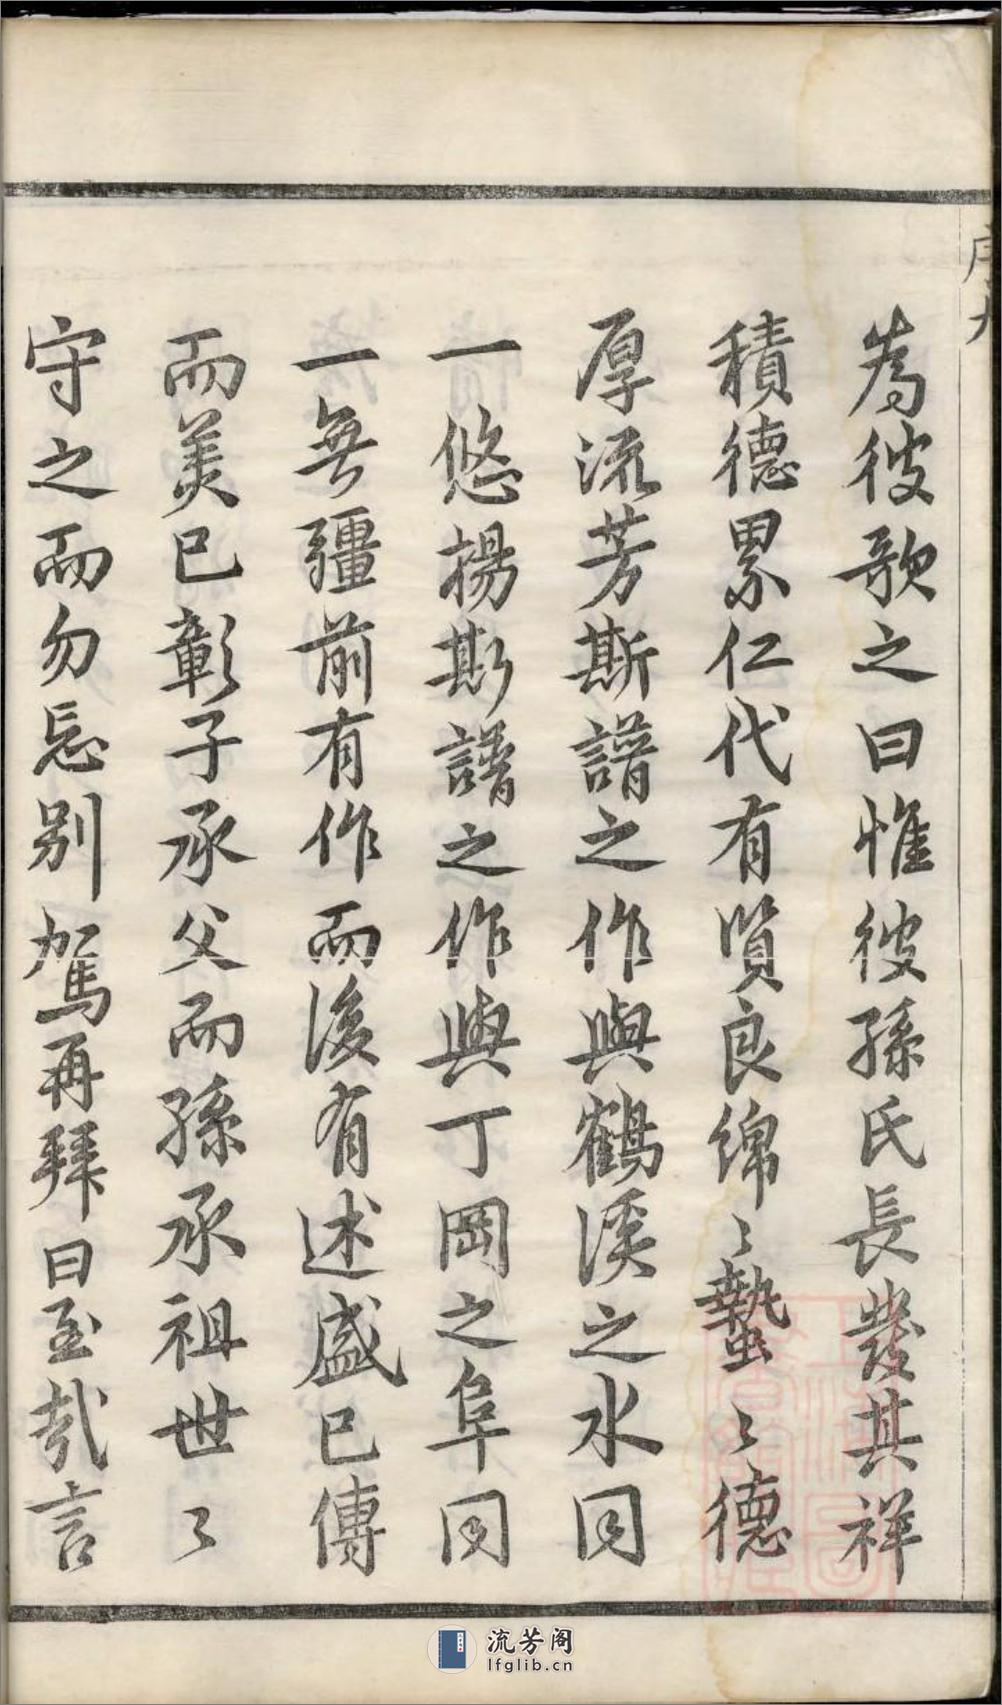 為彼歌之曰惟彼孫氏長發其祥
積德累仁代有賢良綿〻蟄〻德
厚流芳斯譜之作與鶴溪之水同
一悠揚斯譜之作與丁岡之阜同
一無疆前有作而後有述盛已傳
而美已彰子承父而孫承祖世〻
守之而勿忘別駕再拜曰至哉言
流芳阁
lfglib.cn